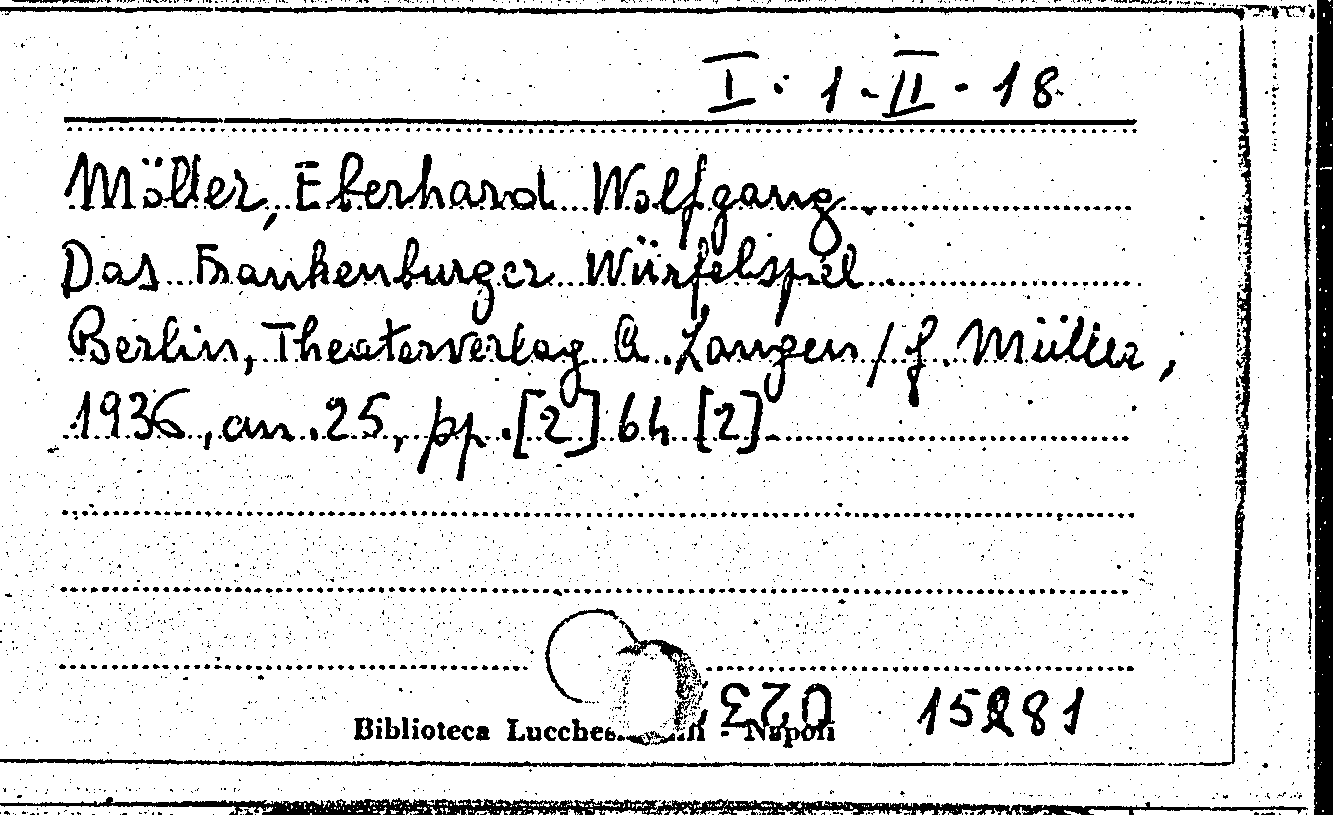 I. 1-II-18
Möller, Eberhard Wolfgang
Das Frankenburger Würfelspiel
Berlin, Theaterverlag A. Langen / G. Müller,
1936, an. 25, pp. [2] 64 [2]
023 15281
Biblioteca - Napoli